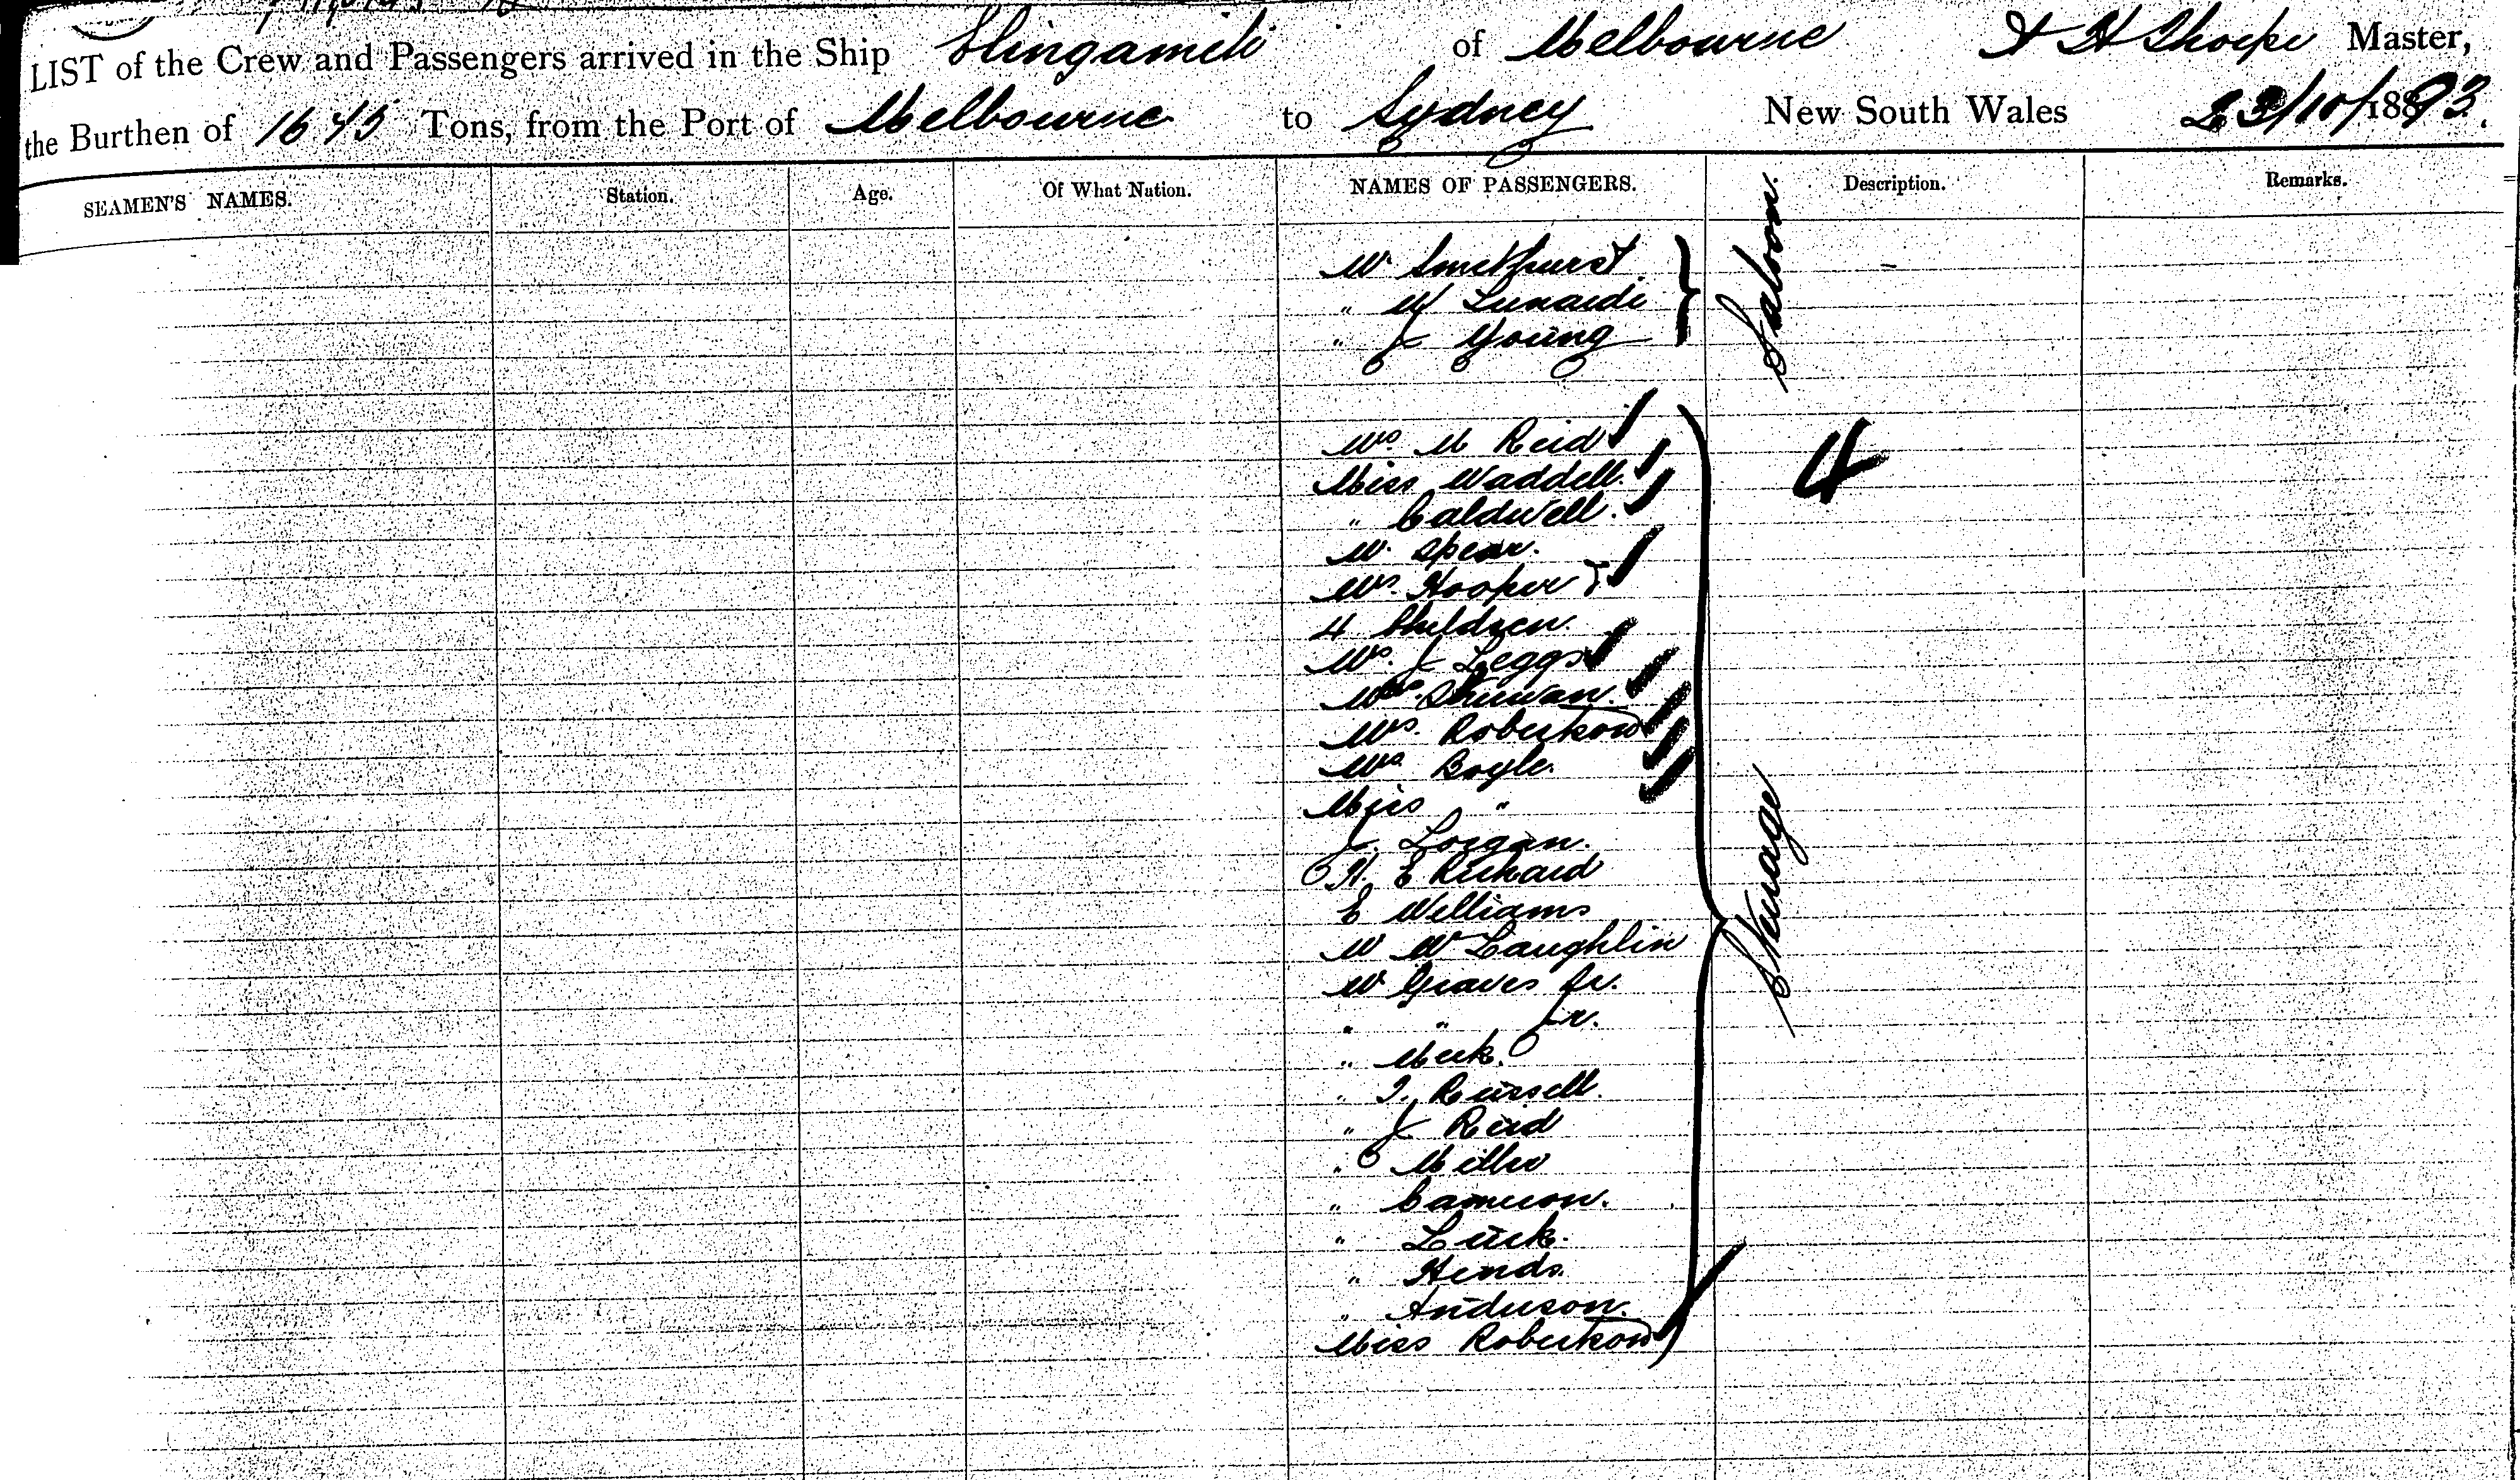 LIST of the Crew and Passengers arrived in the Ship Elingamite of Melbourne A H Thorpe Master,
the Burthen of 1645 Tons, from the Port of Melbourne to Sydney New South Wales 23/10/1893.
SEAMEN'S NAMES. Station. Age. Of What Nation. NAMES OF PASSENGERS. Description. Remarks.
Mr. Smethurst
" W Lunardi
" J Young
Saloon.
Mrs. M Reid
Miss Waddell.
" Caldwell.
4
Mr. Spear.
Mrs. Hooper
4 Children
Mrs. J Leggs
Mrs. Shuwan.
Mrs. Robertson
Mrs Boyle.
Miss "
J. Logan.
H. E Richard
E Williams
Steerage
W McLaughlin
Mr Graves Sr.
" " Jr.
" Meek.
" T. Russell.
" J Reid
" Miller
" Cameron.
" Luck.
" Hinds.
" Anderson.
Miss Robertson